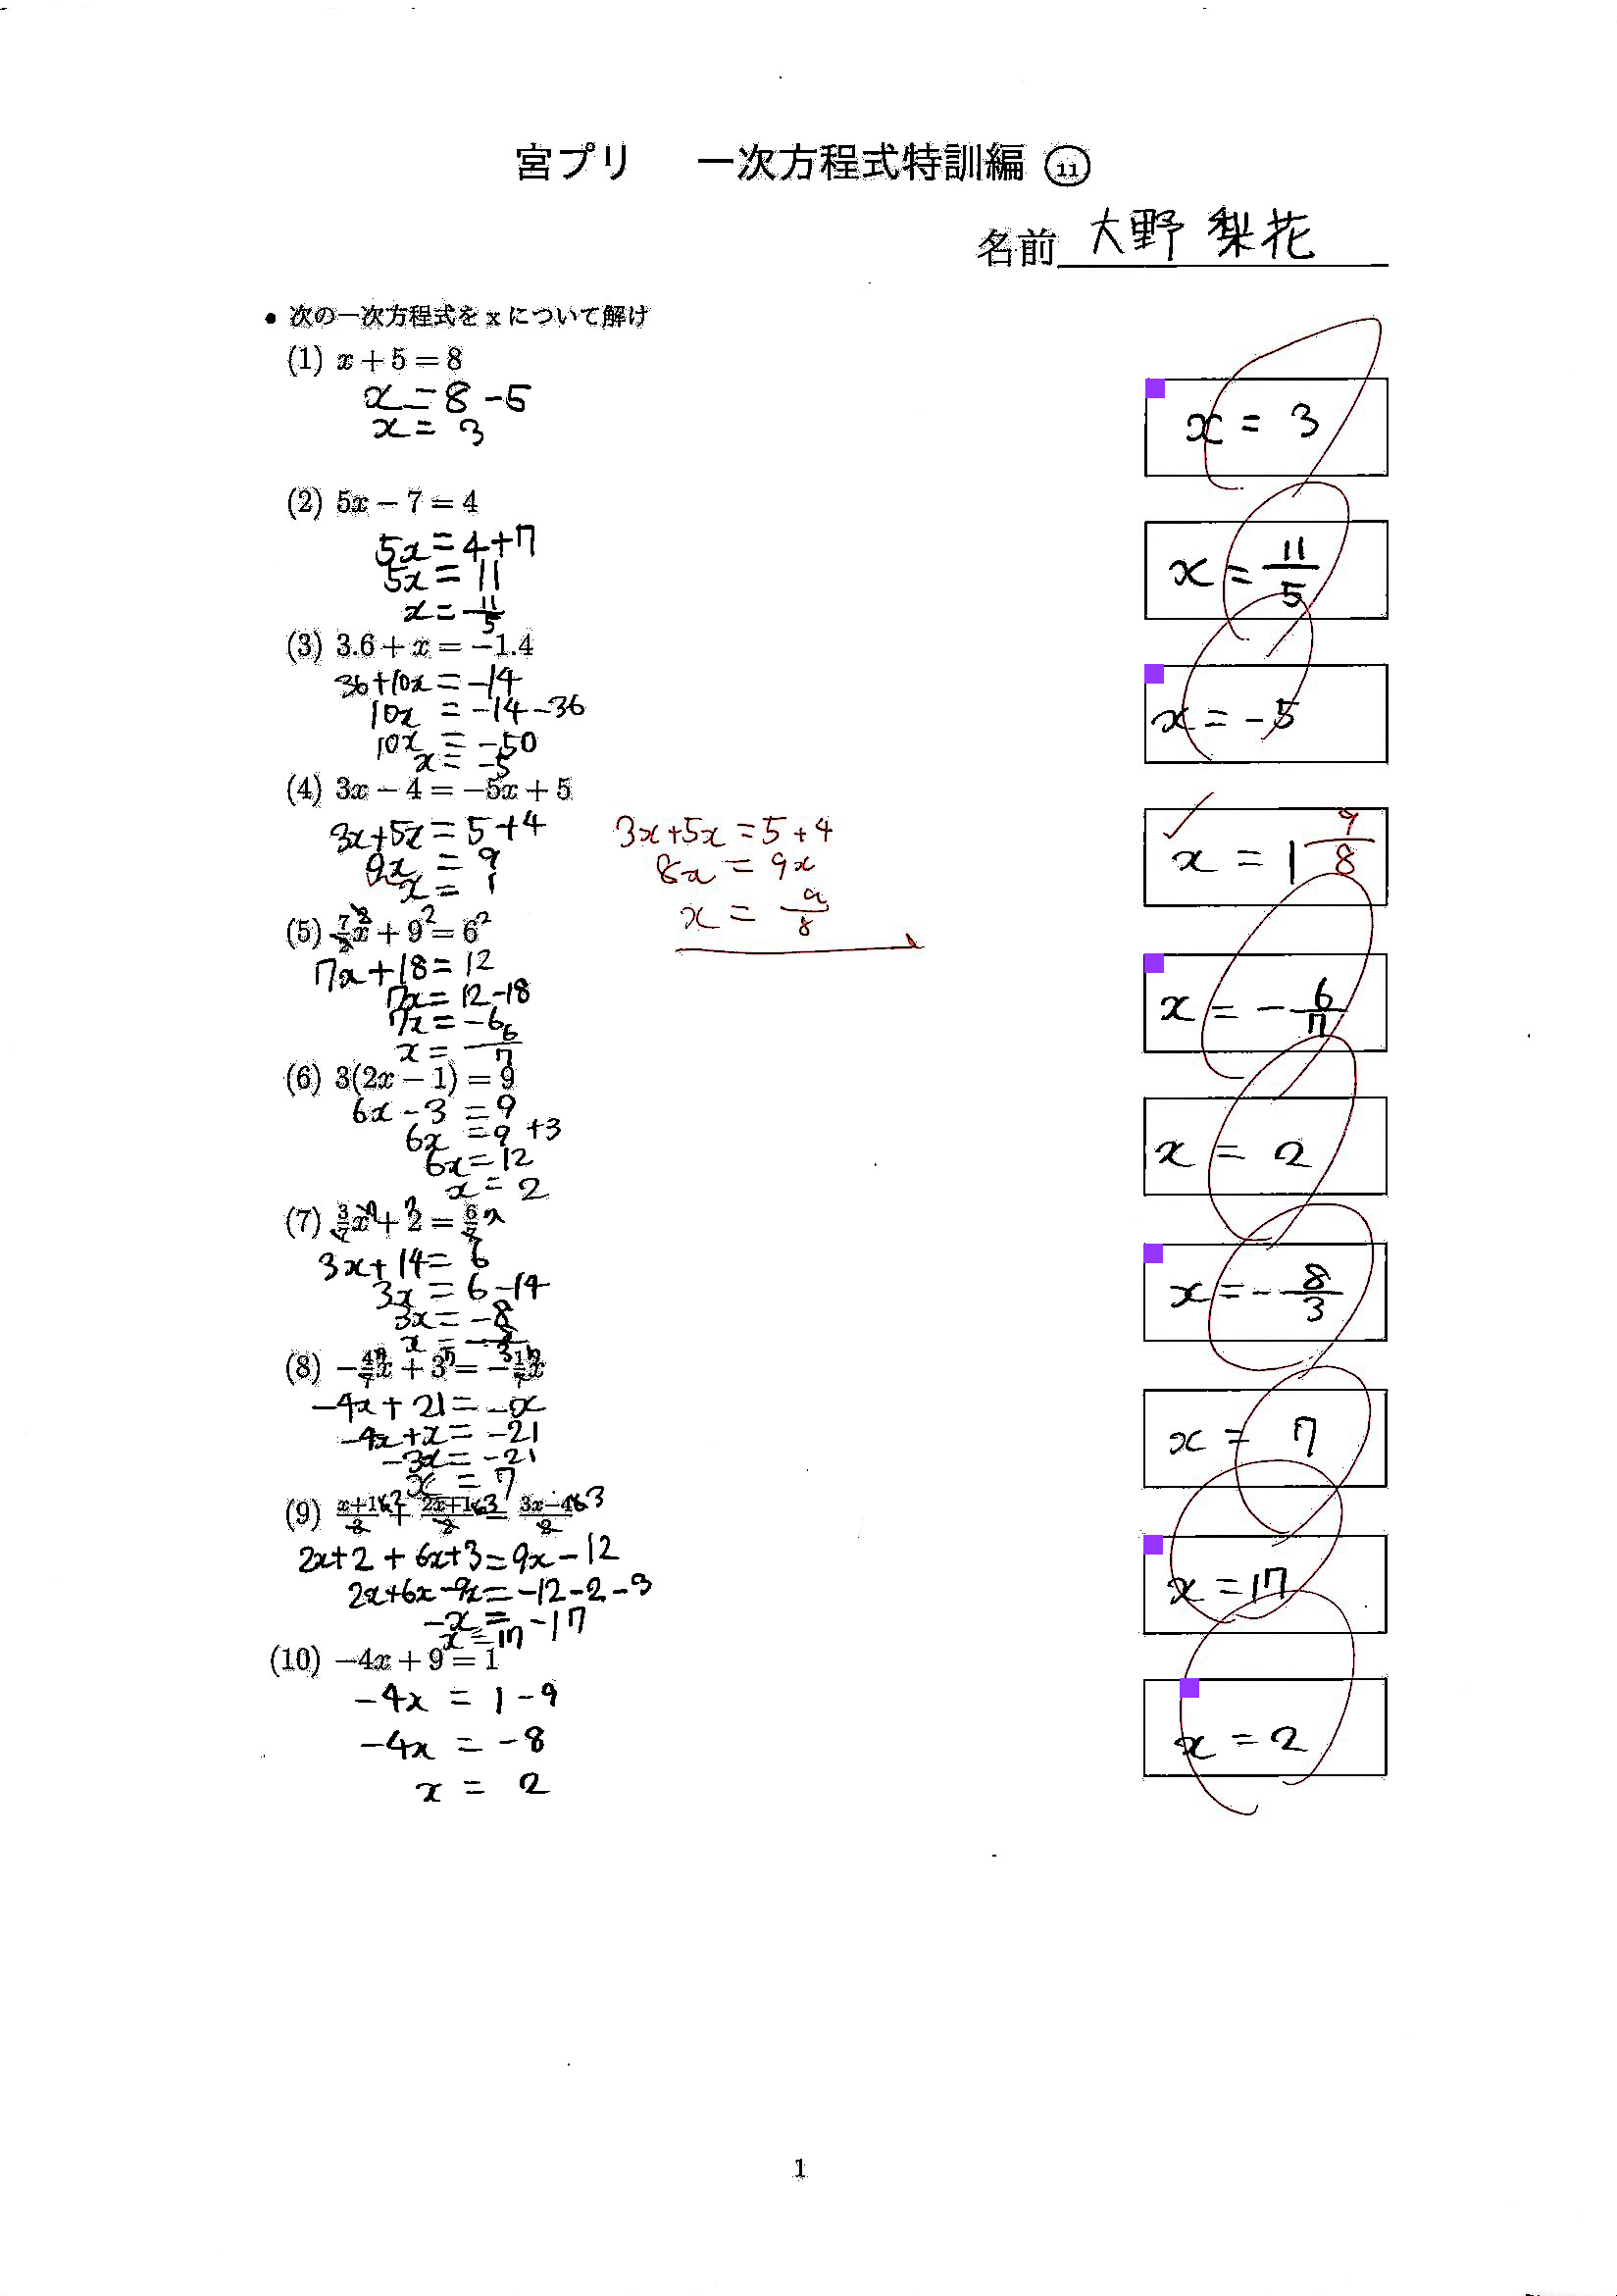 宮プリ 一次方程式特訓編 ⑪
名前 大野 梨花
• 次の一次方程式を x について解け
(1) x + 5 = 8
x = 8 - 5
x = 3
x = 3
(2) 5x - 7 = 4
5x = 4 + 7
5x = 11
x = 11/5
x = 11/5
(3) 3.6 + x = -1.4
36 + 10x = -14
10x = -14 - 36
10x = -50
x = -5
x = -5
(4) 3x - 4 = -5x + 5
3x + 5x = 5 + 4
9x = 9
x = 1
3x + 5x = 5 + 4
8x = 9x
x = 9/8
x = 1 9/8
(5) 7/2 x + 9 = 6
7x + 18 = 12
7x = 12 - 18
7x = -6
x = -6/7
x = -6/7
(6) 3(2x - 1) = 9
6x - 3 = 9
6x = 9 + 3
6x = 12
x = 2
x = 2
(7) 3/7 x + 2 = 6/7
3x + 14 = 6
3x = 6 - 14
3x = -8
x = -8/3
x = -8/3
(8) -4/7 x + 3 = -1/7 x
-4x + 21 = -x
-4x + x = -21
-3x = -21
x = 7
x = 7
(9)
2x + 2 + 6x + 3 = 9x - 12
2x + 6x - 9x = -12 - 2 - 3
-x = -17
x = 17
x = 17
(10) -4x + 9 = 1
-4x = 1 - 9
-4x = -8
x = 2
x = 2
1